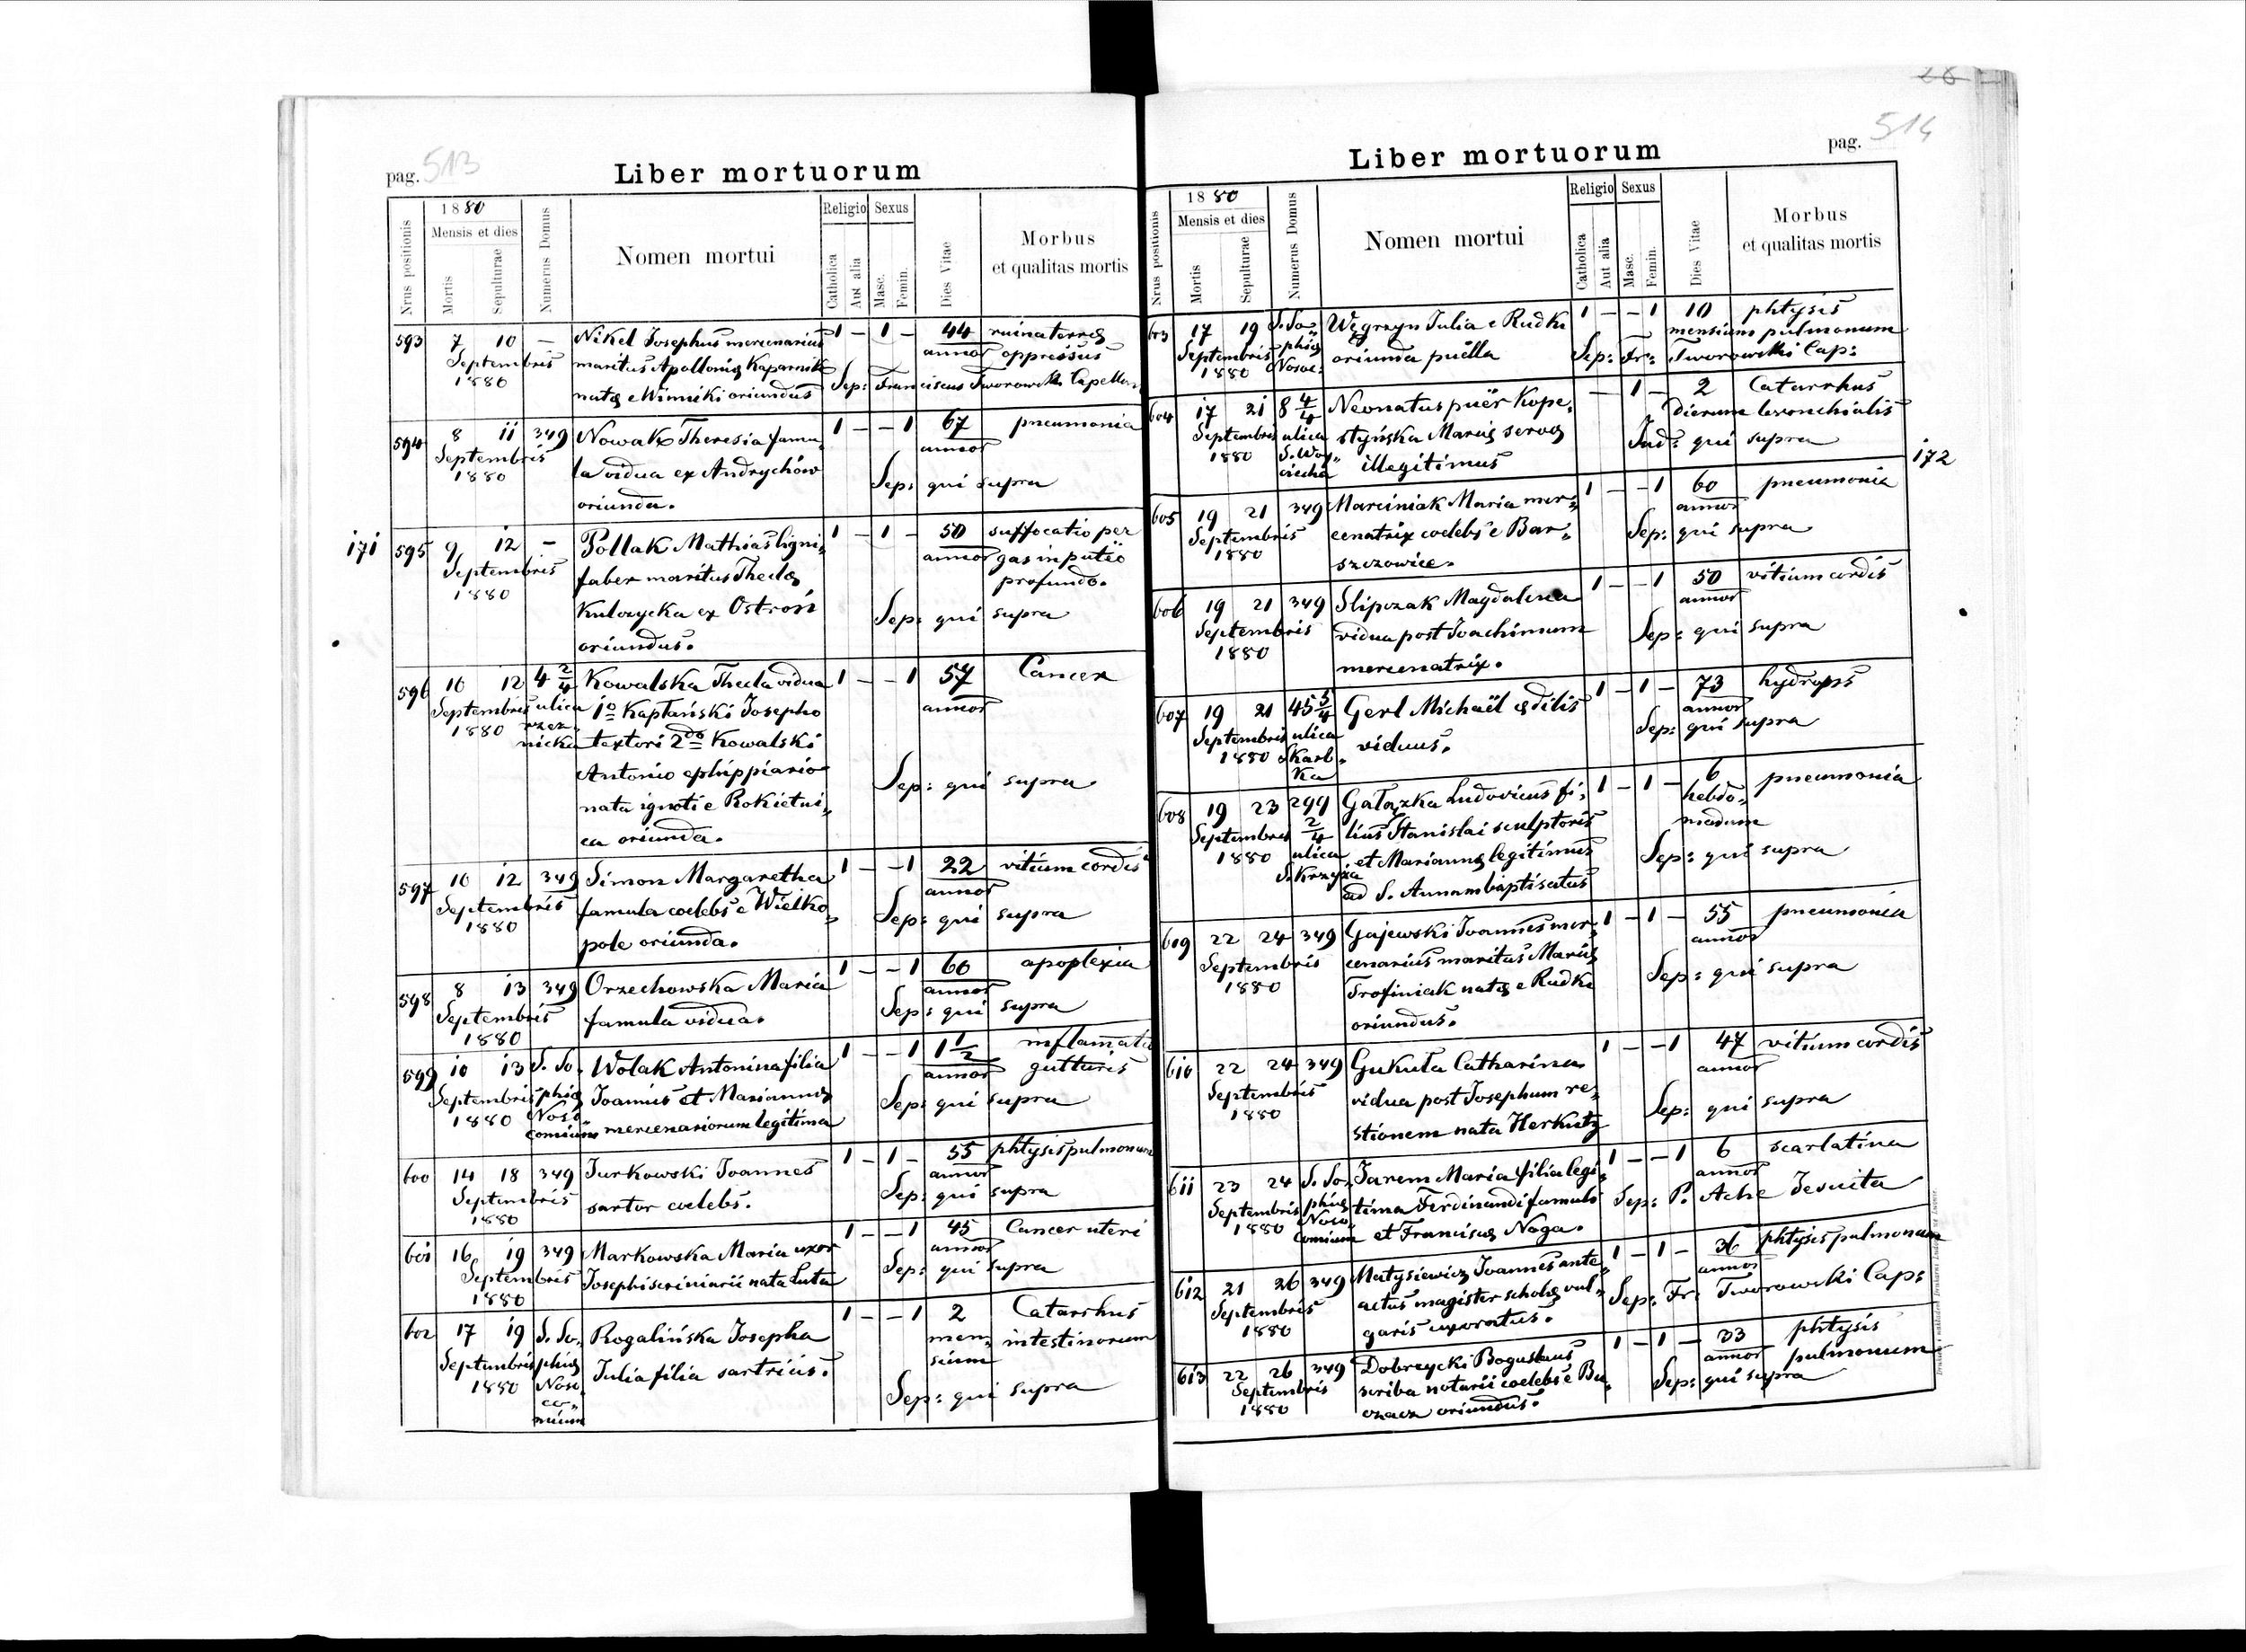 pag. 513
Liber mortuorum
1880
Religio Sexus
Nrus positionis
Mensis et dies
Mortis
Sepulturae
Numerus Domus
Nomen mortui
Catholica
Aut alia
Masc.
Femin.
Dies Vitae
Morbus
et qualitas mortis
593 7 10 — Nikel Josephus mercenarius 1 – 1 – 44 ruina terræ
Septembris maritus Apolloniæ Kaparnik annor oppressus
1880 natæ e Winniki oriundus Sep: Franciscus Tworowski Capellan
594 8 11 349 Nowak Theresia famu„ 1 – – 1 67 pneumonia
Septembris la vidua ex Andrychów annor
1880 oriunda. Sep: qui supra
171
595 9 12 – Pollak Mathias ligni„ 1 – 1 – 50 suffocatio per
Septembris faber maritus Theclæ annor gas in puteo
1880 Kulczycka ex Ostroń profundo.
oriundus. Sep: qui supra
596 10 12 4 2/4 Kowalska Thecla vidua 1 – – 1 57 Cancer
Septembris ulica 1o Kaptański Josepho annor
1880 rzez„ textori 2do Kowalski
nicka Antonio ephippiario Sep: qui supra
nata ignoti e Rokietni„
ca oriunda.
597 10 12 349 Simon Margaretha 1 – – 1 22 vitium cordis
Septembris famula coelebs e Wielko„ annor
1880 pole oriunda. Sep: qui supra
598 8 13 349 Orzechowska Maria 1 – – 1 60 apoplexia
Septembris famula vidua. annor
1880 Sep: qui supra
599 10 13 S. So„ Wolak Antonina filia 1 – – 1 1 1/2 inflamatio
Septembris phiæ Joannis et Mariannæ annor gutturis
1880 Noso comium mercenariorum legitima Sep: qui supra
600 14 18 349 Jurkowski Joannes 1 – 1 – 55 phtysis pulmonum
Septembris sartor coelebs. annor
1880 Sep: qui supra
601 16 19 349 Markowska Maria uxor 1 – – 1 45 Cancer uteri
Septembris Josephi scriniarii nata Luta annor
1880 Sep: qui supra
602 17 19 S. So„ Rogalińska Josepha 1 – – 1 2 Catarrhus
Septembris phiæ Julia filia sartricis. men„ intestinorum
1880 Noso sium
co„
mium Sep: qui supra
pag. 514
Liber mortuorum
1880
Religio Sexus
Nrus positionis
Mensis et dies
Mortis
Sepulturae
Numerus Domus
Nomen mortui
Catholica
Aut alia
Masc.
Femin.
Dies Vitae
Morbus
et qualitas mortis
603 17 19 S. So„ Węgrzyn Julia e Rudki 1 – – 1 10 phtysis
Septembris phiæ oriunda puella mensium pulmonum
1880 Nosoc: Sep: Fr: Tworowski Cap:
604 17 21 8 4/4 Neonatus puer Kope„ – 1 – 2 Catarrhus
Septembris ulica styńska Mariæ servæ dierum bronchialis
1880 S. Woj„ illegitimus Ind: qui supra
ciecha
172
605 19 21 349 Marciniak Maria mer„ 1 – – 1 60 pneumonia
Septembris cenatrix coelebs e Bar„ annor
1880 szczowice. Sep: qui supra
606 19 21 349 Slipczak Magdalena 1 – – 1 50 vitium cordis
Septembris vidua post Joachimum annor
1880 mercenatrix. Sep: qui supra
607 19 21 45 3/4 Gerl Michaël ædilis 1 – 1 – 73 hydrops
Septembris ulica viduus. annor
1880 Skarb„ Sep: qui supra
ka
608 19 23 299 Gałązka Ludovicus fi„ 1 – 1 – 6 pneumonia
Septembris 2/4 lius Stanislai sculptoris hebdo„
1880 ulica et Mariannæ legitimus madum
S. Krzyża ad S. Annam baptisatus Sep: qui supra
609 22 24 349 Gajewski Joannes mer„ 1 – 1 – 55 pneumonia
Septembris cenarius maritus Mariæ annor
1880 Trofiniak natæ e Rudki Sep: qui supra
oriundus.
610 22 24 349 Gukuła Catharina 1 – – 1 47 vitium cordis
Septembris vidua post Josephum re„ annor
1880 stionem nata Herkutz Sep: qui supra
611 23 24 S. So„ Jarem Maria filia legi„ 1 – – 1 6 scarlatina
Septembris phiæ tima Ferdinandi famuli annor
1880 Noso„ comium et Franciscæ Noga. Sep: P. Ache Jesuita
612 21 26 349 Matysiewicz Joannes ante„ 1 – 1 – 36 phtysis pulmonum
Septembris actus magister scholæ vul„ annor
1880 garis uxoratus. Sep: Fr: Tworowski Cap:
613 22 26 349 Dobrzycki Boguslaus 1 – 1 – 33 phtysis
Septembris scriba notarii coelebs e Bu„ annor pulmonum
1880 czacz oriundus. Sep: qui supra